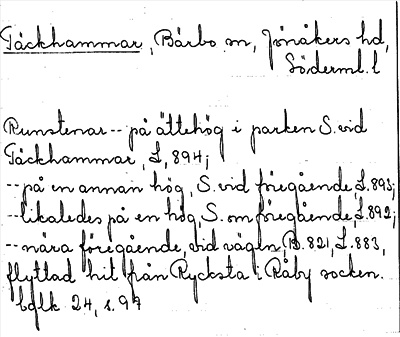 Täckhammar, Bärbo sn, Jönåkers hd,
Söderml. l
Runstenar -- på ättehög i parken S. vid
Täckhammar, L, 894;
-- på en annan hög, S. vid föregående, L. 893;
-- likaledes på en hög, S. om föregående, L. 892;
-- nära föregående, vid vägen, B. 821, L. 883,
flyttad hit från Rycksta i Råby socken.
bdlk 24, s. 97